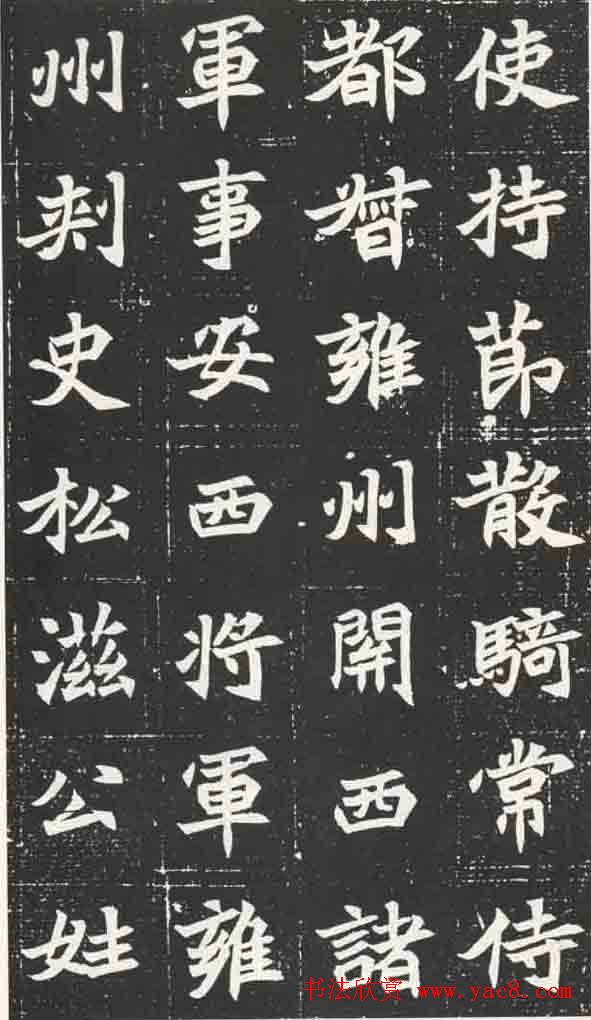 使持莭散騎常侍
都督雍州開西諸
軍事安西将軍雍
州刾史松滋公姓
书法欣赏 www.yac8.com